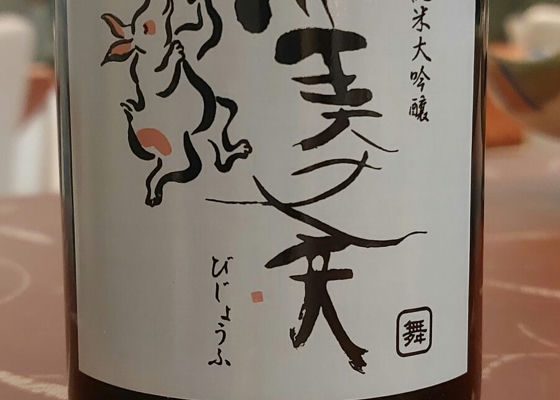 純米大吟醸
美丈夫
びじょうふ
舞